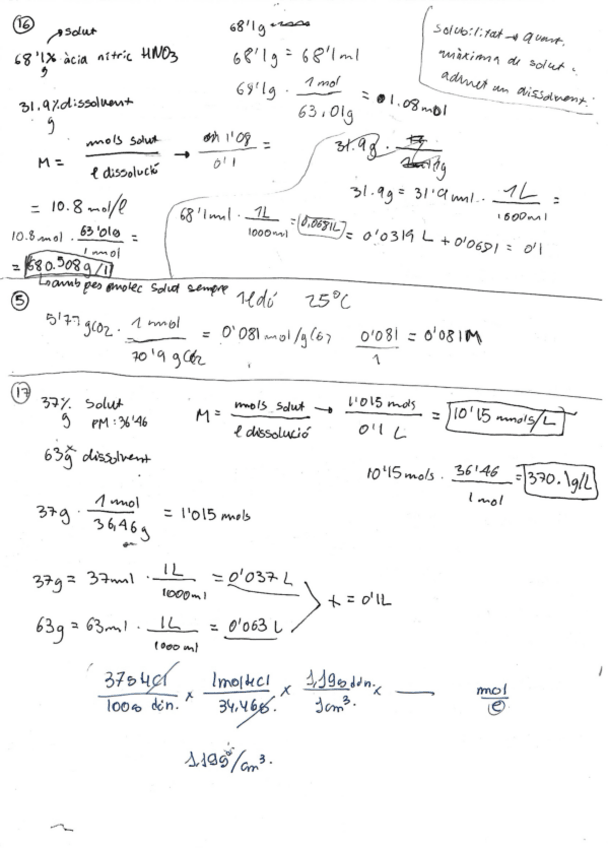 16
solut
68'1% àcid nítric HNO3
g
31.9% dissolvent
g
M = mols solut / l dissolució → 1'08 / 0'1 =
= 10.8 mol/l
10.8 mol · 63'01g / 1 mol =
= 680.508 g/l
amb pes molec solut sempre
68'1g
68'1g = 68'1ml
68'1g · 1 mol / 63,01g = 1.08 mol
Solubilitat → quant.
màxima de solut
admet un dissolvent.
31.9g ·
31.9g = 31'9 ml · 1L / 1000ml =
68'1ml · 1L / 1000ml = 0,0681L = 0'0319 L + 0'0681 = 0'1
5
25°C
5'77 gCl2 · 1 mol / 70'9 gCl2 = 0'081 mol/gCl2 0'081 / 1 = 0'081M
17
37% solut
g PM: 36'46
63% dissolvent
g
M = mols solut / l dissolució → 1'015 mols / 0'1 L = 10'15 mols/L
10'15 mols · 36'46 / 1 mol = 370.1g/L
37g · 1 mol / 36,46g = 1'015 mols
37g = 37ml · 1L / 1000ml = 0'037 L
+ = 0'1L
63g = 63ml · 1L / 1000ml = 0'063 L
37g HCl / 100g din. × 1 mol HCl / 34,46g × 1,19g din. / 1cm³. × — mol / l
1,19g/cm³.